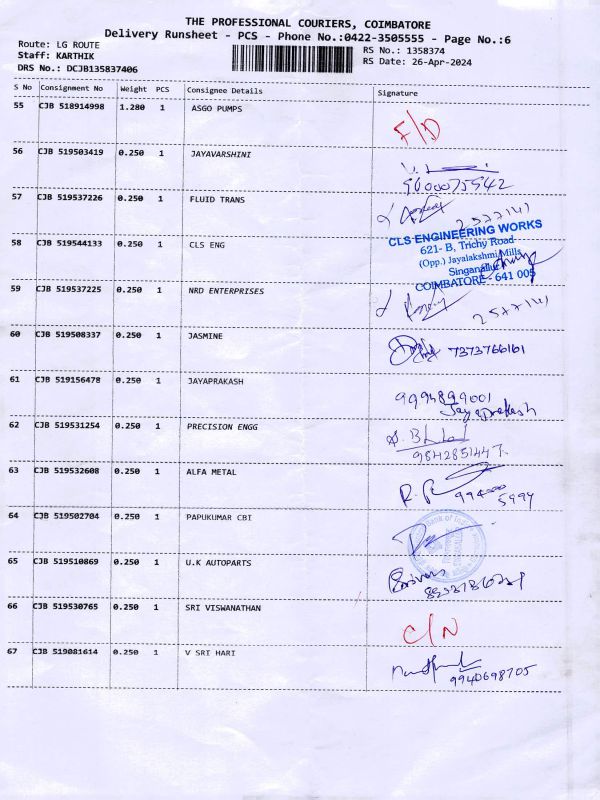 THE PROFESSIONAL COURIERS, COIMBATORE
Delivery Runsheet - PCS - Phone No.:0422-3505555 - Page No.:6
Route: LG ROUTE
Staff: KARTHIK
DRS No.: DCJB135837406
RS No.: 1358374
RS Date: 26-Apr-2024
S No Consignment No Weight PCS Consignee Details Signature
55 CJB 518914998 1.280 1 ASGO PUMPS F/D
56 CJB 519503419 0.250 1 JAYAVARSHINI
9600075542
57 CJB 519537226 0.250 1 FLUID TRANS
2577141
58 CJB 519544133 0.250 1 CLS ENG
CLS ENGINEERING WORKS
621- B, Trichy Road
(Opp.) Jayalakshmi Mills
Singanallur
COIMBATORE - 641 005
59 CJB 519537225 0.250 1 NRD ENTERPRISES
2577141
60 CJB 519508337 0.250 1 JASMINE 7373766161
61 CJB 519156478 0.250 1 JAYAPRAKASH 9994899001
Jayaprakash
62 CJB 519531254 0.250 1 PRECISION ENGG
9842851447
63 CJB 519532608 0.250 1 ALFA METAL
5994
64 CJB 519502704 0.250 1 PAPUKUMAR CBI
Bank of India
65 CJB 519510869 0.250 1 U.K AUTOPARTS
66 CJB 519530765 0.250 1 SRI VISWANATHAN C/N
67 CJB 519081614 0.250 1 V SRI HARI
9940698705